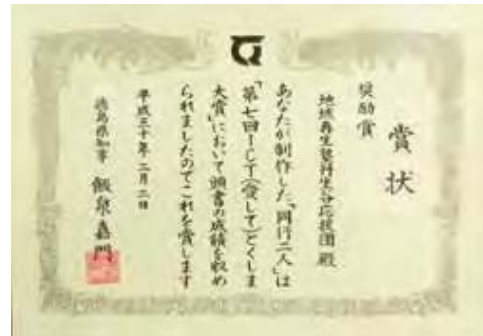 賞状
奨励賞
地域再生塾神生谷応援団 殿
あなたが制作した「同行二人」は
「第七回ICT(愛して)とくしま
大賞」において頭書の成績を収め
られましたのでこれを賞します
平成三十年二月二日
徳島県知事 飯泉嘉門